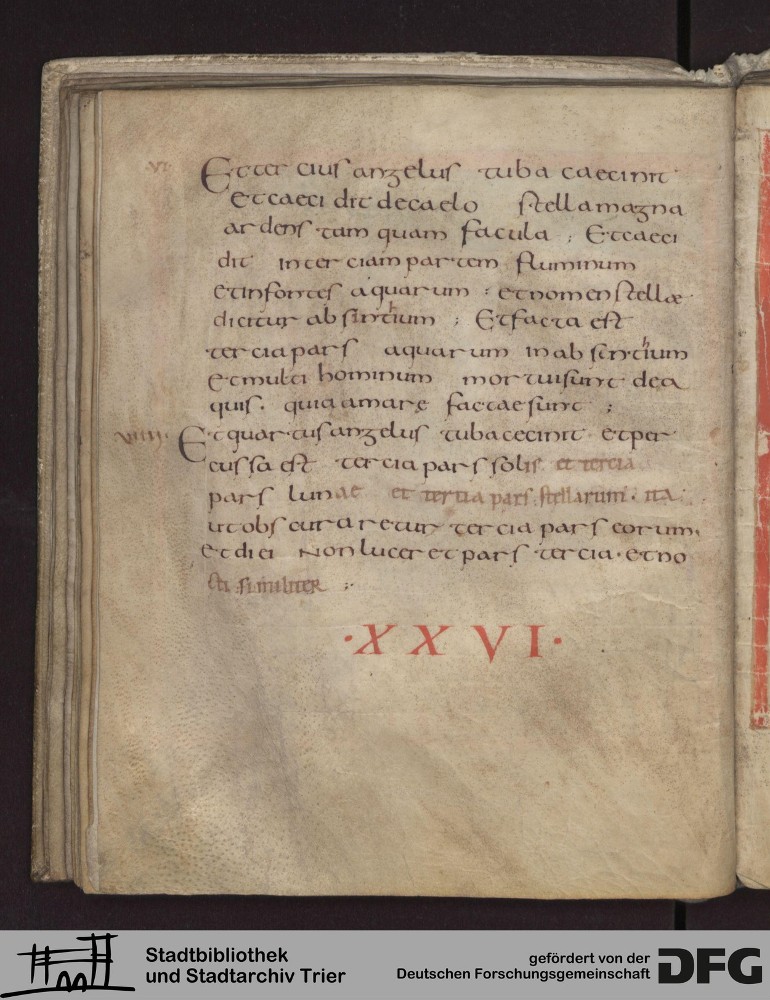 VI
Et tercius angelus tuba caecinit
Et caecidit de caelo stella magna
ardens tam quam facula ; Et caeci
dit in terciam partem fluminum
et in fontes aquarum : et nomen stellæ
dicitur absinthium ; Et facta est
tercia pars aquarum in absinthium
et multi hominum mortui sunt de a
quis . quia amarę factae sunt ;
VIIII . Et quartus angelus tuba cecinit et per
cussa est tercia pars solis et tercia
pars lunae et tertia pars stellarum . ita
ut obscuraretur tercia pars eorum .
et diei non lucer et pars tercia . et no
cti similiter ;
· X X V I ·
Stadtbibliothek
und Stadtarchiv Trier
gefördert von der
Deutschen Forschungsgemeinschaft
DFG